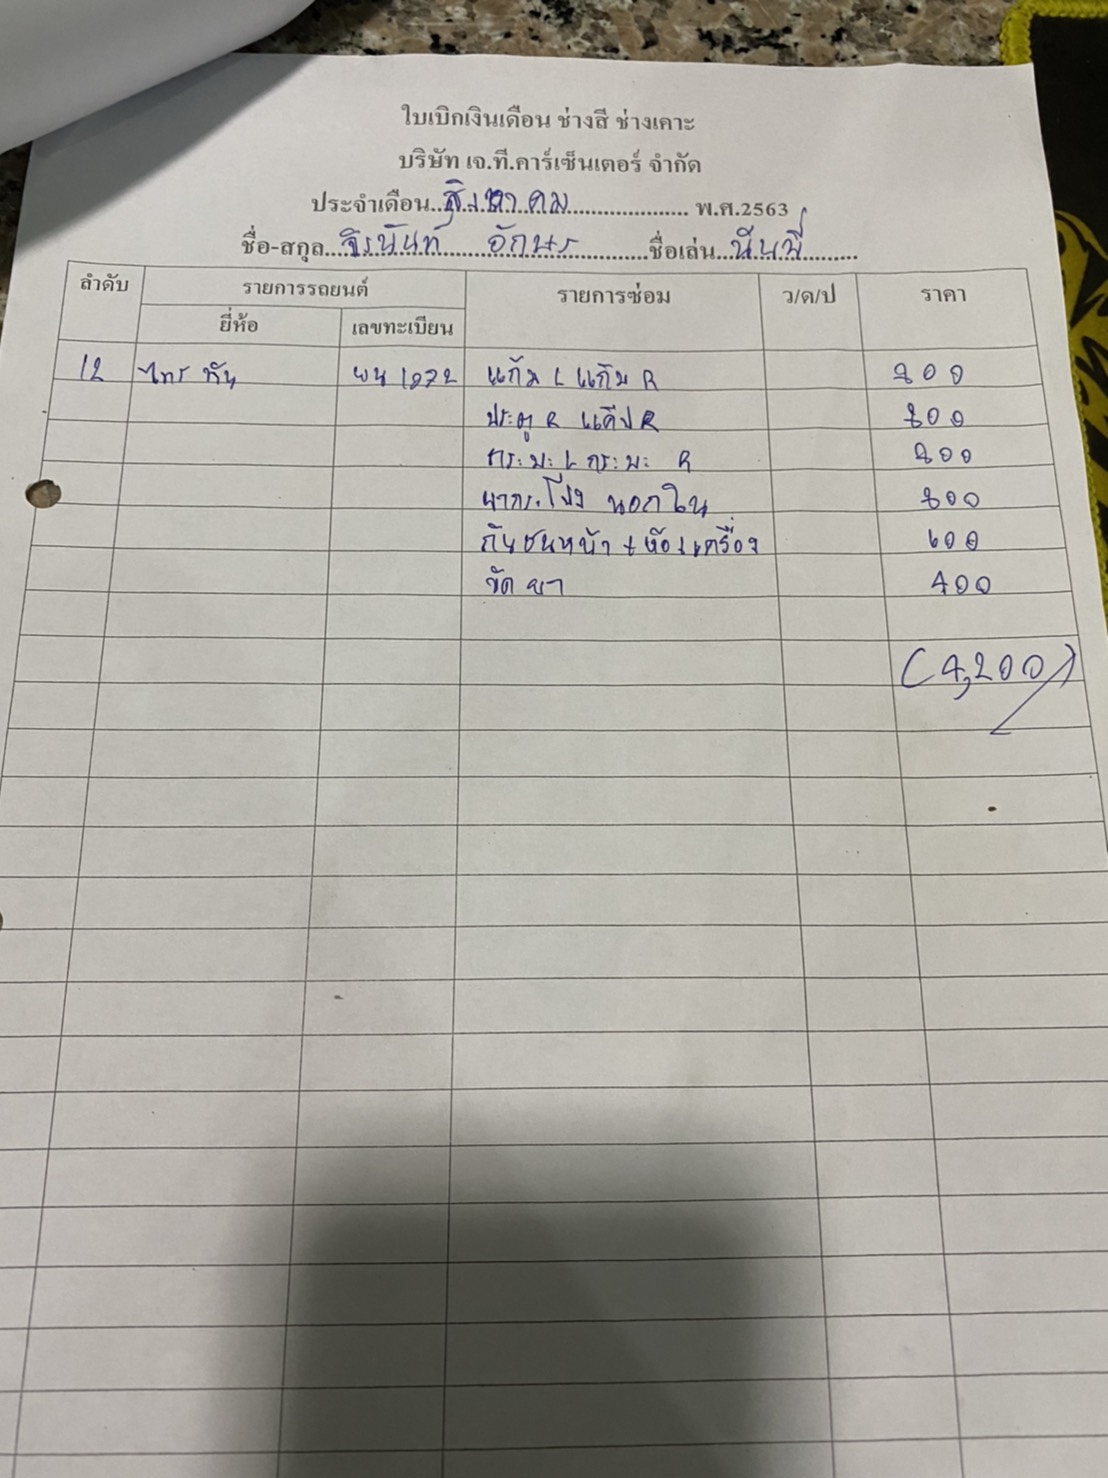 ใบเบิกเงินเดือน ช่างสี ช่างเคาะ
บริษัท เจ.ที.คาร์เซ็นเตอร์ จำกัด
ประจำเดือน..สิงหาคม........................ พ.ศ.2563
ชื่อ-สกุล...จิรนันท์ อักษร............ชื่อเล่น...นันนี่.........
ลำดับ รายการรถยนต์ รายการซ่อม ว/ด/ป ราคา
ยี่ห้อ เลขทะเบียน
12 ไทรทัน ผน 1272 แก้ม L แก้ม R 800
ประตู R แค๊ป R 800
กระบะ L กระบะ R 800
ฝากระโปรง นอกใน 800
กันชนหน้า + ห้องเครื่อง 600
ขัดยา 400
(4,200)